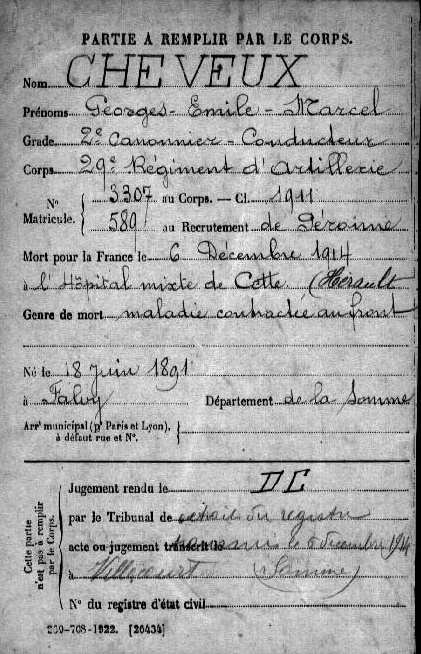 PARTIE À REMPLIR PAR LE CORPS.
Nom CHEVEUX
Prénoms Georges - Emile - Marcel
Grade 2e Canonnier - Conducteur
Corps 29e Régiment d'Artillerie
N° Matricule. { 3307 au Corps. — Cl. 1911
589 au Recrutement de Péronne
Mort pour la France le 6 Décembre 1914
à l'Hôpital mixte de Cette (Hérault
Genre de mort maladie contractée au front
Né le 18 Juin 1891
à Falvy Département de la Somme
Arrt municipal (pr Paris et Lyon), à défaut rue et N°. {
Cette partie n'est pas à remplir par le Corps.
Jugement rendu le DC
par le Tribunal de extrait du registre
acte ou jugement transcrit le le 6 décembre 1914
à (Somme)
N° du registre d'état civil
269-708-1922. [26434]